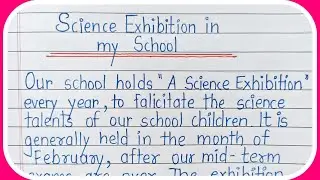 Science Exhibition in
my School
Our school holds "A Science Exhibition"
every year, to falicitate the science
talents of our school children. It is
generally held in the month of
February, after our mid-term
exams are over. The exhibition